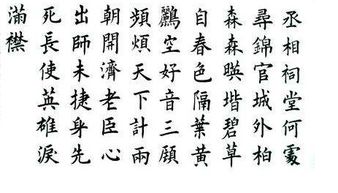 丞相祠堂何處
尋錦官城外柏
森森暎堦碧草
自春色隔葉黃
鸝空好音三顧
頻煩天下計兩
朝開濟老臣心
出師未捷身先
死長使英雄淚
滿襟